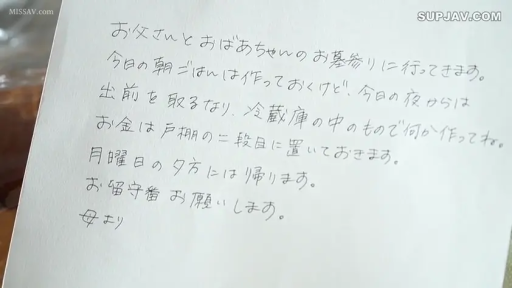 MISSAV.COM
SUPJAV.COM
お父さんとおばあちゃんのお墓参りに行ってきます。
今日の朝ごはんは作っておくけど、今日の夜からは
出前を取るなり、冷蔵庫の中のもので何か作ってね。
お金は戸棚の二段目に置いておきます。
月曜日の夕方には帰ります。
お留守番お願いします。
母より